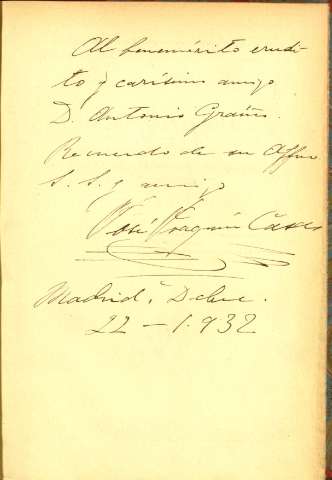 Al benemérito erudi-
to y carísimo amigo
D. Antonio Graiño.
Recuerdo de su affmo
S. S. y amigo
José Joaquín Casas
Madrid, Dcbre.
22 - 1.932